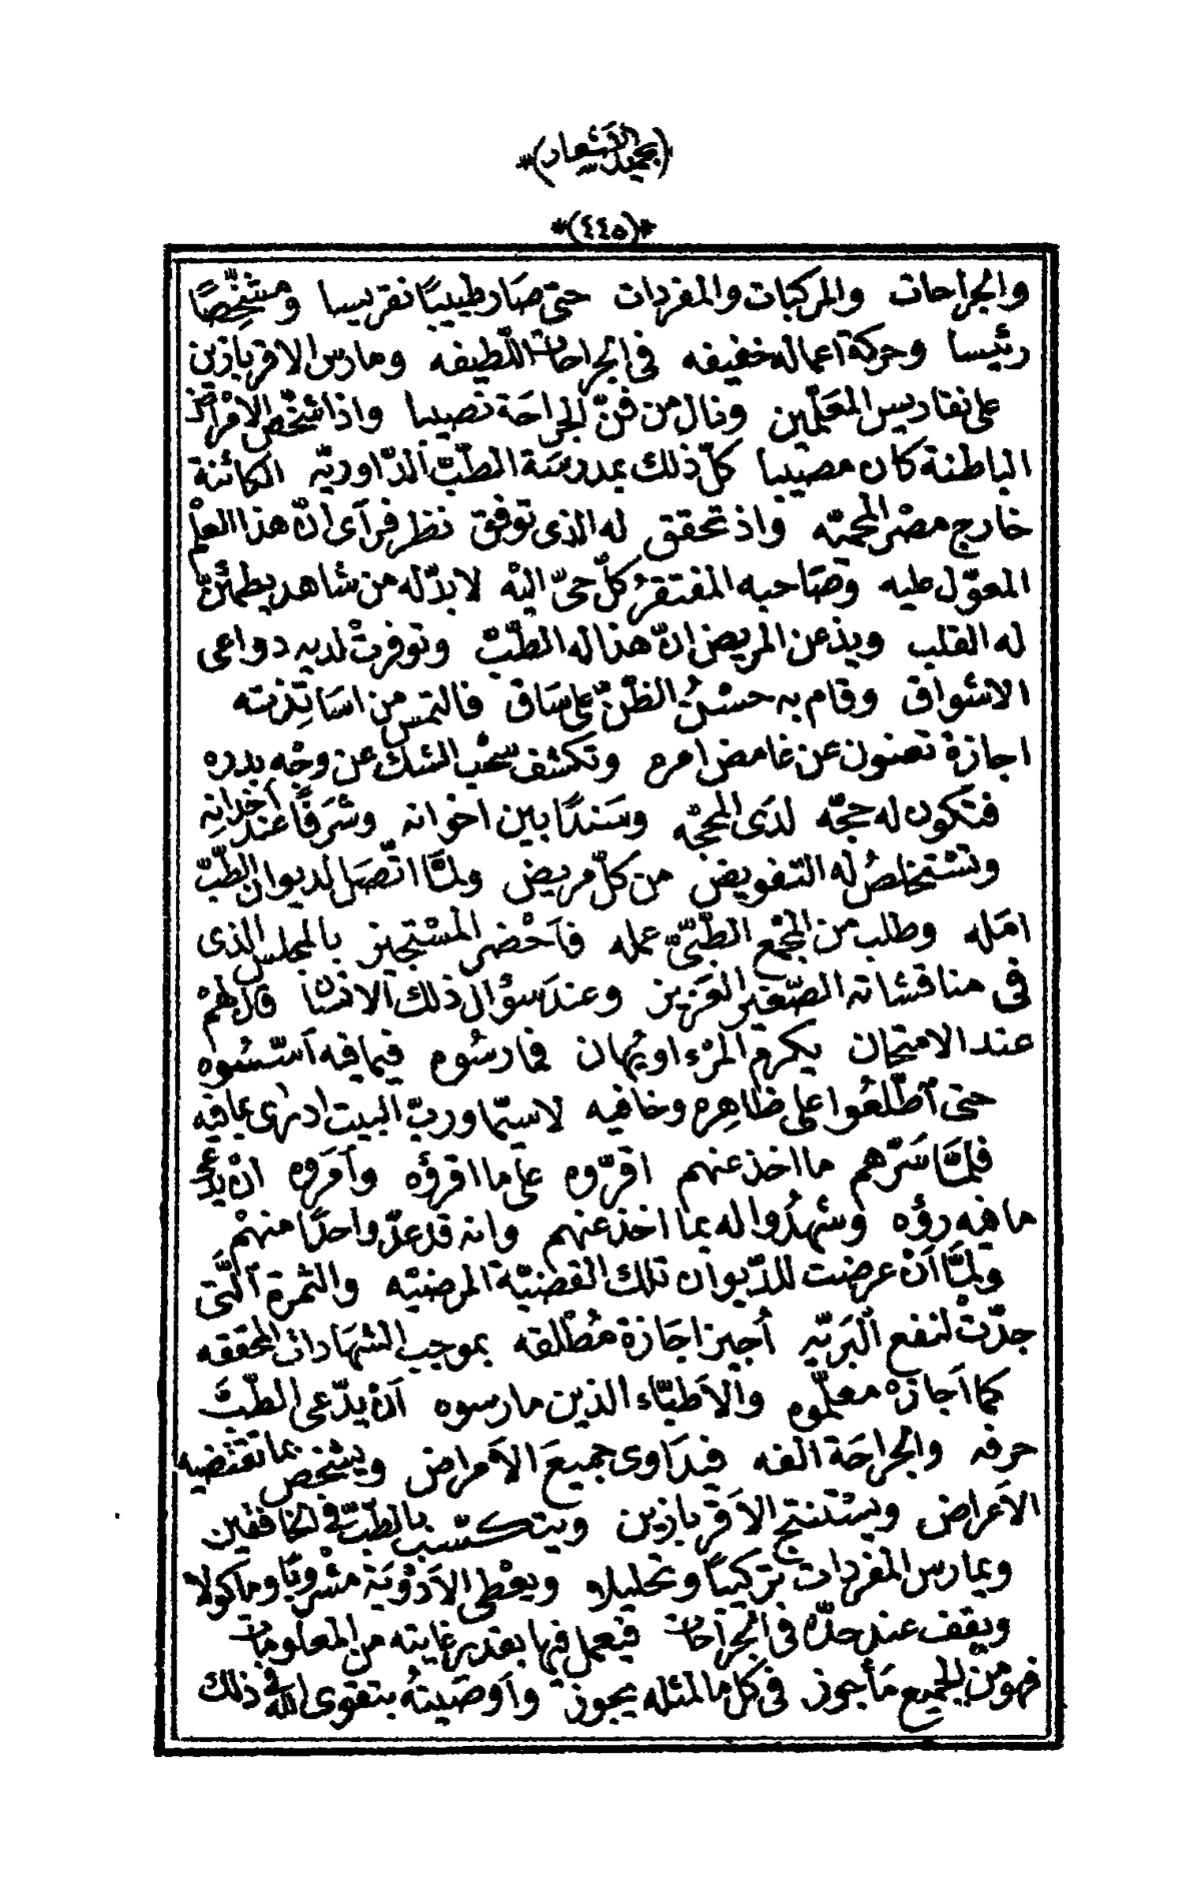 *(٤٤٥)*
والجراحات والمركبات والمفردات حتى صَار طبيبًا نقريسا ومشخِّصًا
رئيسا وحركة اعماله خفيفه فى الجراحات اللّطيفه ومارس الاقرباذين
على نقاريس المعَلّمين ونال من فنّ الجراحَة نصيبا واذا شخّص الامْراض
الباطنة كان مصيبا كلّ ذلك بمدرسَة الطبّ الدّاوريّه الكائنة
خارج مصْر المحميّه واذ تحقق له الذى توفيق نظر فرآى انّ هذا العلْم
المعوّل عليه وصَاحبه المفتقرُ كلّ حىّ اليْه لا بدّ له من شاهد يطمئنّ
له القلب ويذعن المريض انّ هذا له الطبّ وتوفرتْ لديه دواعى
الاشواق وقام به حسْنُ الظنّ على سَاق فالتمس من اسَاتِذته
اجازة تصنون عن غامض امره وتكشف سحْب الشك عن وجْه بدره
فتكون له حجّه لدَى المحجّه وسَندًا بين اخوانه وشرَفًا عند أخْدَانِهِ
وتسْتخلصُ له التفويض من كلّ مريض ولمَّا اتّصَل لديوان الطّبّ
امَله وطلب من المجْمع الطبّىّ عمله فأحْضر المسْتجيز بالمجلس الذى
فى مناقشاته الصّغير العَزيز وعند سؤال ذلك الانسَان قال لهمْ
عند الامتحان يكرم المرْء او يُهان فمارسُوه فيما فيه أسّسُوه
حتى اطّلعُوا على ظاهِره وخافيه لاسيّما وربّ البيت ادرى بما فيه
فلمَّا سَرّهم ما اخذ عنهم اقرّوه على ما اقرؤه وأمَروه انْ يدّعى
ما فيه رؤه وشهدُوا له بما اخذ عنهم وانه قد عدّ واحدًا منهمْ
ولمَّا أنْ عرضت للدّيوان تلك القضيّة المرضيْه والثمرة الَّتى
جدّتْ لنفع البَريّه أُجيز اجَازة مُطْلقه بموجب الشهَادات المحَققه
كما أجازهْ معلّموه والأطبّاء الذين مارسوه أنْ يدّعى الطّبَّ
حرفه والجراحَة الفه فيدَاوى جميعَ الأمراض ويشخص بما تقتضيه
الأعراض ويسْتنتج الأقرباذين ويتكسّب بالطبّ فى الخافقين
ويمارس المفردات تركيبًا وتحليلا ويعْطى الأدْويَة مشْروبًا ومأكولا
ويقف عند حدّه فى الجرآحات فيعمل فيها بقدر غايته من المعلومات
فهو من الجميع مَأجوز فى كل ما لمثله يجوز وأوصَيتهُ بتقوى الله فى ذلك